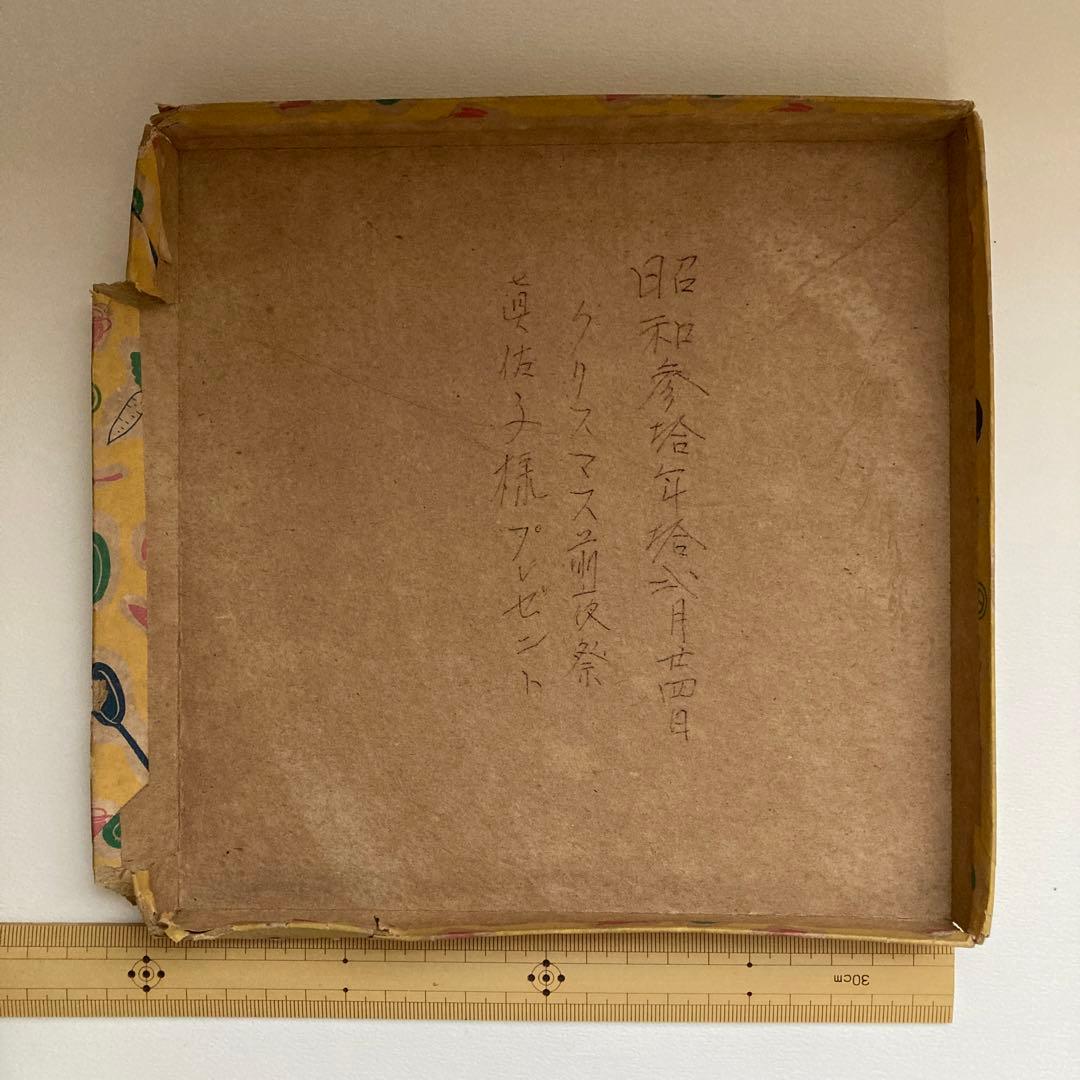 昭和参拾年拾弐月廿四日
クリスマス前夜祭
眞佐子様プレゼント
30cm